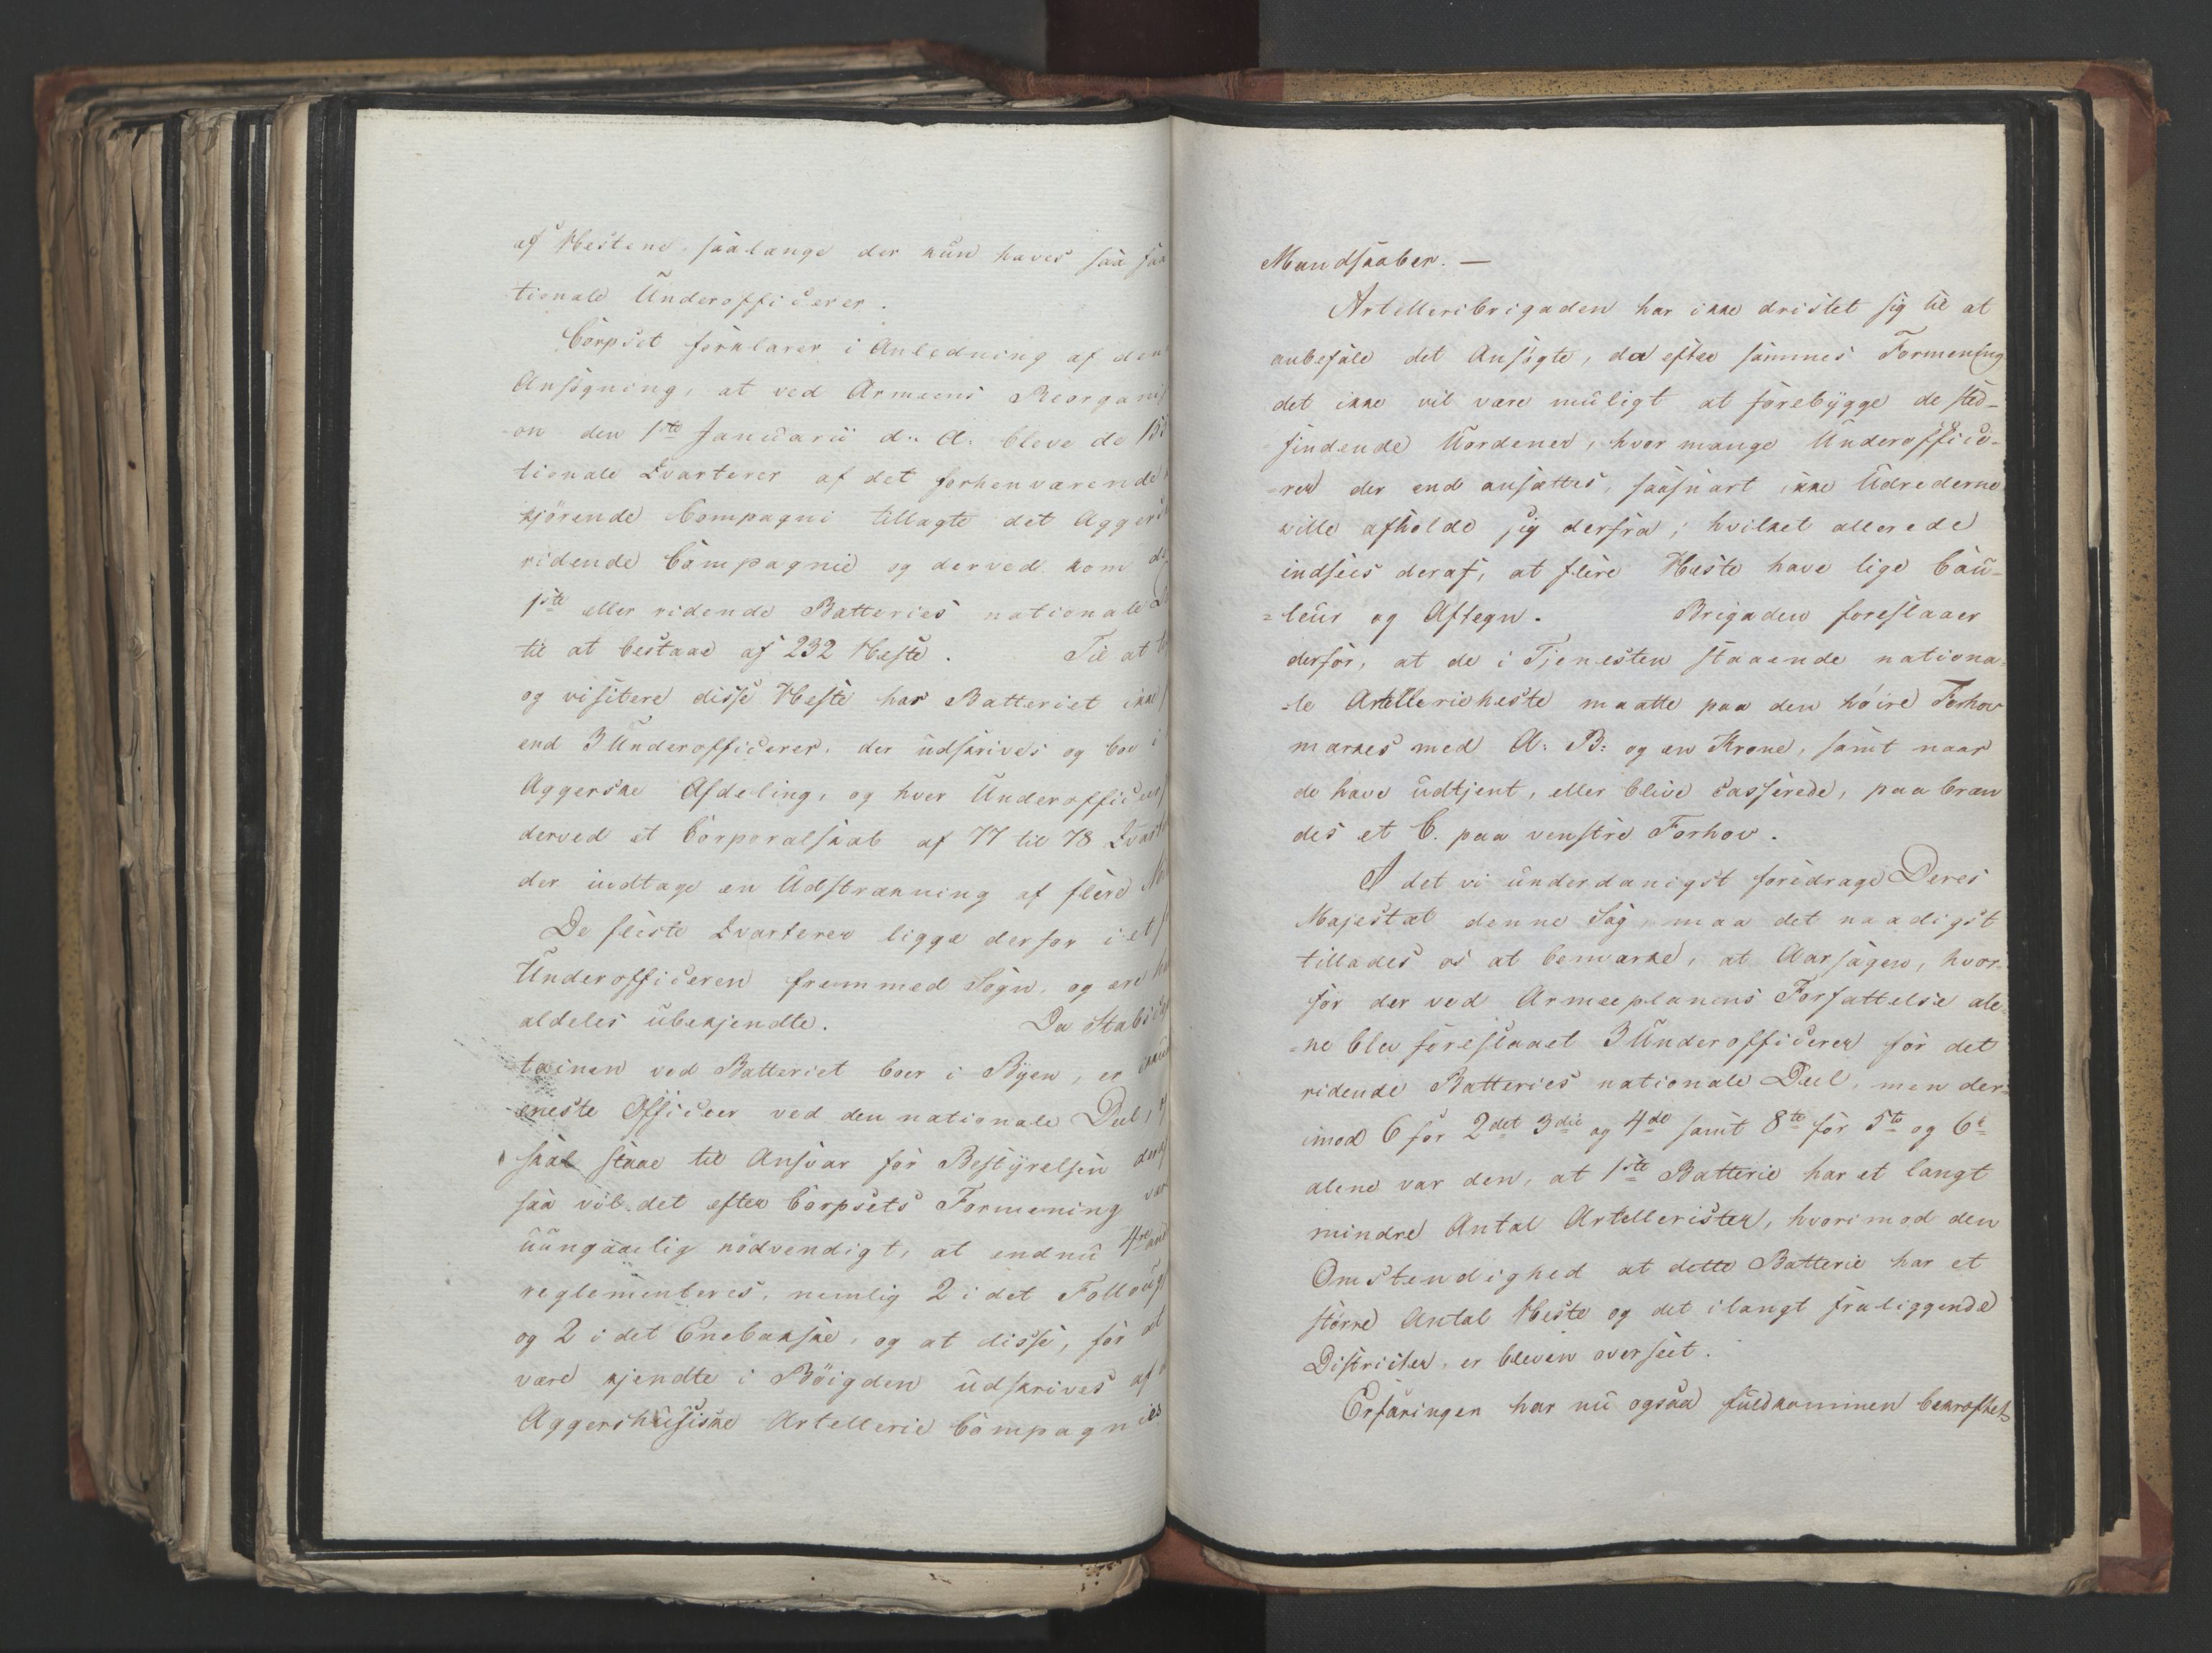 af Hestene saalange der kun haves saa faa
tionale Underofficerer.
Corpset forklarer i Anledning af den
Ansøgning, at ved Armeens Reorganis
-on den 1ste Januarii d: A: bleve de 155
tionale Qvarterer af det forhenværende
kjørende Compagni tillagte det Aggers
ridende Compagnie og derved kom
1ste eller ridende Batteries nationale
til at bestaae af 232 Heste. Til at
og visitere disse Heste har Batteriet ikke
end 3 Underofficerer, der udskrives og boe i
Aggerske Afdeling, og hver Underofficeer
derved et Corporalskab af 77 til 78 Qvart
der indtage en Udstrækning af flere
De fleste Qvarterer ligge derfor i et
Underofficeren fremmed Sogn, og ere
aldeles ubekjendte. Da Stabs
tainen ved Batteriet boer i Byen, er
eneste Officeer ved den nationale Deel,
skal staae til Ansvar for Bestyrelsen
saa vil det efter Corpsets Formening
uungaaelig nødvendigt, at endnu 4re
reglementeres, nemlig 2 i det Follo
og 2 i det Enebakske, og at disse, for at
være kjendte i Bøigden udskrives af
Aggershusiske Artellerie Compagnies
Mandskaber. —
Artelleribrigaden har ikke dristet sig til at
anbefale det Ansøgte, da efter sammes Formening
det ikke vil være muligt at forebygge de sted-
findende Uordener, hvor mange Underoffice-
-rer der end ansættes, saasnart ikke Udrederne
wille afholde sig derfra; hvilket allerede
indsees deraf, at flere Heste have lige Cou-
=leur og Aftegn. Brigaden foreslaaer
derfor, at de i Tjenesten staaende nationa-
-le Artellerieheste maatte paa den høire Forhov
mærkes med A: B: og en Krone, samt naar
de have udtjent, eller blive casserede, paa bræn
des et C. paa venstre Forhov.
I det vi underdanigst foredrage Deres
Majestæt denne Sag, maa det naadigst
tillades os at bemærke, at Aarsagen, hvor-
for der ved Armeeplanens Forfattelse ale-
-ne blev foreslaaet 3 Underofficerer for det
ridende Batteries nationale Deel, men der-
imod 6 for 2det 3die og 4de samt 8te for 5te og 6te
alene var den, at 1ste Batterie har et langt
mindre Antal Artellerister, hvorimod den
Omstendighed at dette Batterie har et
større Antal Heste og det i langt fraliggende
Districter, er bleven overseet.
Erfaringen har nu ogsaa fuldkommen bekræftet